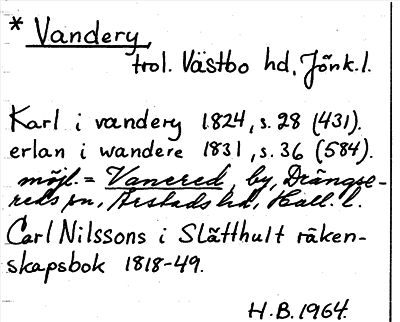 * Vandery,
trol. Västbo hd, Jönk. l.
Karl i vandery 1824, s. 28 (431).
erlan i wandere 1831, s. 36 (584).
möjl. = Vancred, by, Drängse-
reds sn, Årstads hd, Hall. l.
Carl Nilssons i Slätthult räken-
skapsbok 1818-49.
H.B. 1964.